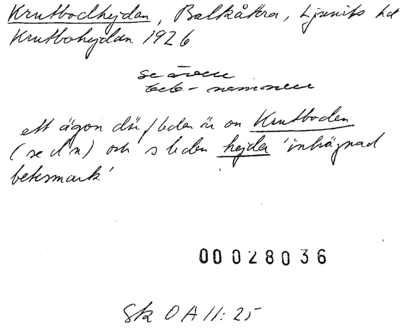 Krutbodhejdan, Balkåkra, Ljunits hd
Krutbohejdan 1926
se även
ett ägon där f leden är on Krutboden
(se d n) och s leden hejda 'inhägnad
betesmark'
00028036
Sk OA 11:25